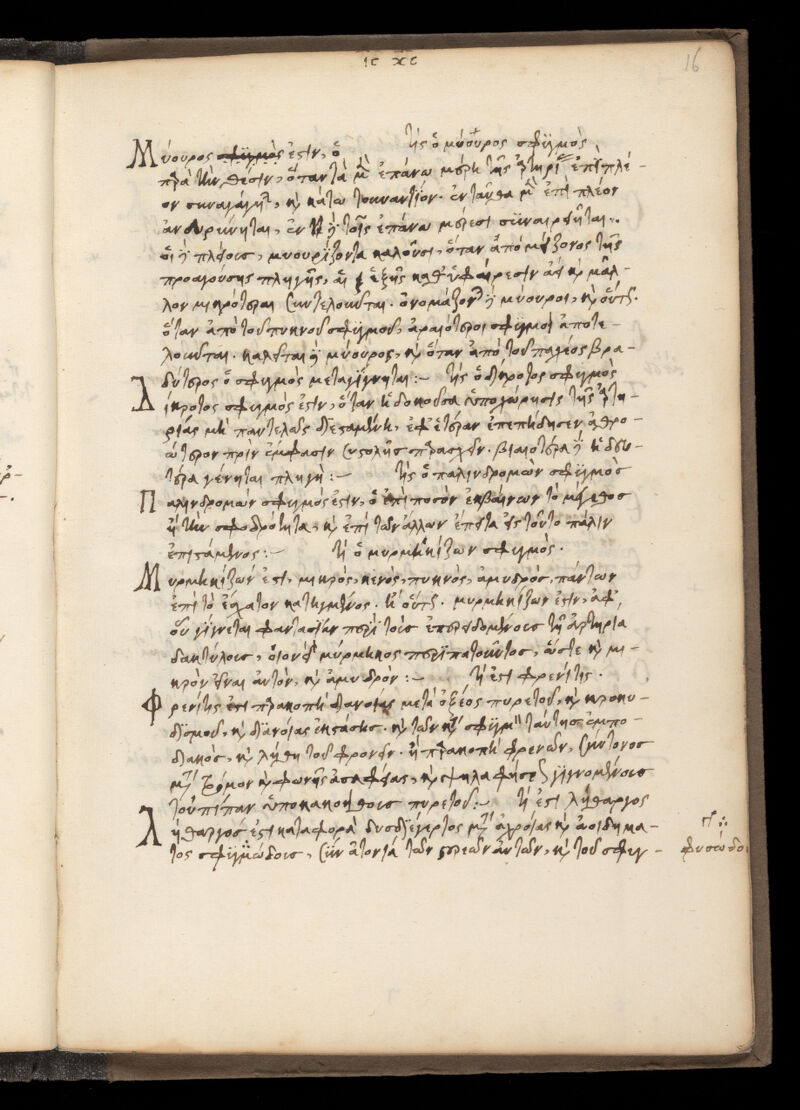 ις χς
16
τίς ὁ μύουρος σφυγμὸς
Μύουρος σφυγμὸς ἐστιν, ὁ
παρὰ τὴν θέσιν, ὅταν τὰ μὲν ἐπάνω μέρη τῆς ἀρτηρίας ἐπὶ πλέ-
ον συναγάγη, καὶ κάτω τουναντίον. ἐνταῦθα μὲν ἐπὶ πλέον
ἀνευρύνηται, ἐν δὲ τοῖς ἐπάνω μέρεσι συναιρῆται.
οἱ δὲ πλείους, μυουρίζοντα καλοῦσι, ὅταν ἀπὸ μείζονος τῆς
προαγούσης πληγῆς, αἱ ἑξῆς καθ' ὑφαίρεσιν ἀεὶ καὶ μᾶλ-
λον μικρότεραι συντελοῦνται. ὀνομάζονται δὲ μύουροι, καὶ οὕτως.
ὅταν ἀπὸ τοῦ πυκνοῦ σφυγμοῦ, ἀραιότεροι σφυγμοὶ ἀποτε-
λοῦνται. καλεῖται δὲ μύουρος, καὶ ὅταν ἀπὸ τοῦ ταχέος βρα-
δύτερος ὁ σφυγμὸς μεταγίγνηται :- τίς ὁ δίκροτος σφυγμὸς
Δίκροτος σφυγμός ἐστιν, ὅταν ἡ δοκοῦσα ὑποχώρησις τῆς ἀρτη-
ρίας μὴ παντελῶς διεσταμένη, ἐφ' ἑτέραν ἐπεπήδησεν ἀθρο-
ώτερον πρὶν ἔμφασιν συστολῆς παρασχεῖν. βιαιοτέρα δὲ ἡ δευ-
τέρα γένηται πληγή :- τίς ὁ παλινδρομῶν σφυγμὸς
Παλινδρομῶν σφυγμός ἐστιν, ὁ ἐπὶ ποσὸν ἐκβαίνων τὸ μέγεθος
ἢ τὴν σφοδρότητα, καὶ ἐπὶ τῶν ἄλλων ἔπειτα εἰς τοῦτο πάλιν
ἐπιστάμενος :- τί ὁ μυρμηκίζων σφυγμός.
Μυρμηκίζων ἐστι, μικρὸς, κενὸς, πυκνὸς, ἀμυδρὸς, πάντων
ἐπὶ τὸ ἔσχατον κατηγμένος. ἢ οὕτως. μυρμηκίζων ἐστιν, ἀφ'
οὗ γίγνεται φαντασίαν περὶ τοῖς ἐπερειδομένοις τῇ ἀρτηρία
δακτύλοις, οἱονεὶ μύρμηκος περιπατοῦντος, ὥστε καὶ μι-
κρὸν εἶναι αὐτὸν, καὶ ἀμυδρόν :- τί ἐστι φρενίτις.
Φρενίτις ἐστὶ παρακοπὴ διανοίας μετὰ ὀξέος πυρετοῦ, καὶ κροκυ-
δισμοῦ, καὶ διανοίας ἐκστάσης. καὶ τῶν κατὰ σφυγμὸν ταύτης ἐμπο-
διακὸς, καὶ λήθη τοῦ φρονεῖν. ἢ παρακοπὴ φρενῶν, σύντονος
μετὰ τρόμου καὶ φωνῆς ἀσαφείας, καὶ ψηλαφήσεως γιγνομένοις
τοὐπίπαν ὑποκακοήθοις πυρετοῦ :- τί ἐστι λήθαργος
Λήθαργός ἐστι καταφορὰ δυσδιέγερτος μετὰ ἀχροίας καὶ ἀοιδήμα-
τος σφυγμώδοις, σὺν ἀτονία τῶν μερεῶν αὐτῶν, καὶ τοῦ σφυγ-
φυσώδοι